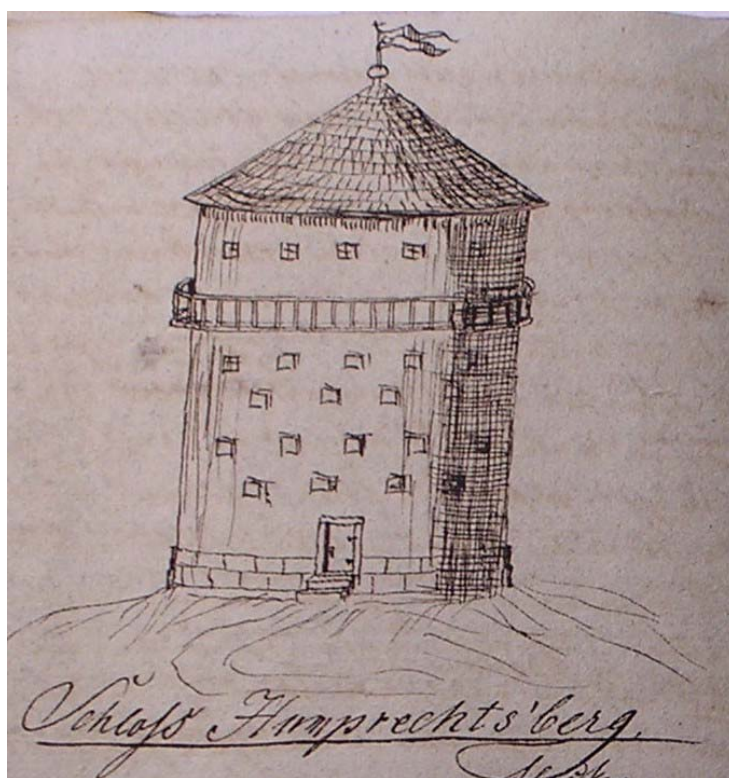 Schloss Humprechts'berg.